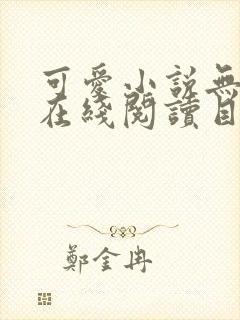 可愛小說無
在綫閱讀目
鄭金冉